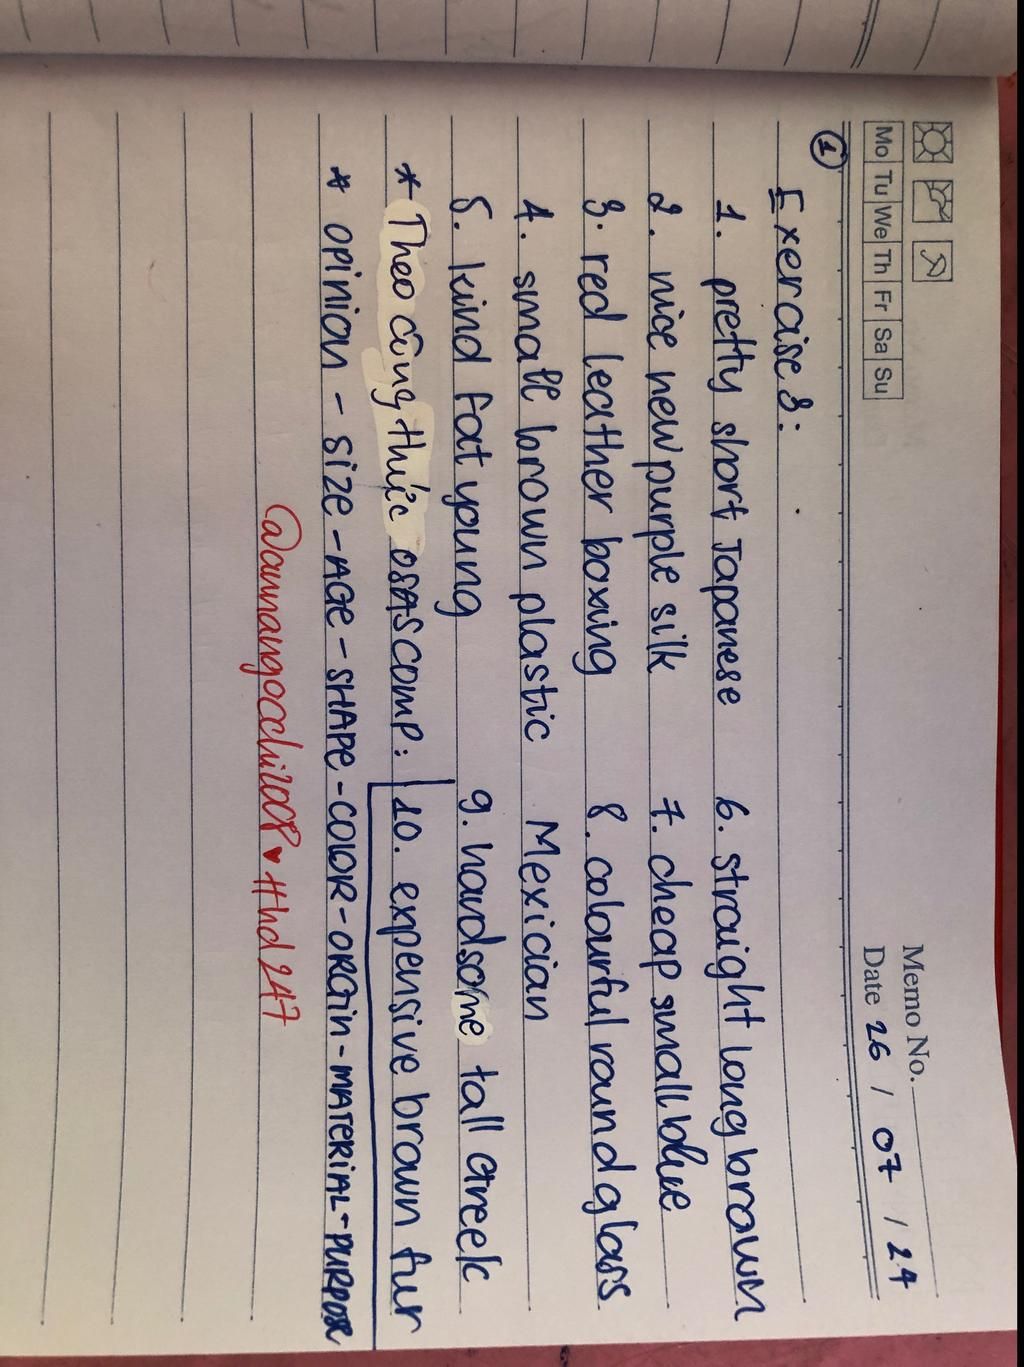 Memo No.
Mo Tu We Th Fr Sa Su
Date 26 / 07 / 24
①
Exercise 8:
1. pretty short Japanese
6. straight long brown
2. nice new purple silk
7. cheap small blue
3. red leather boxing
8. colourful round glass
4. small brown plastic
Mexician
5. kind fat young
9. handsome tall Greek
* Theo công thức OSASCOMP:
10. expensive brown fur
* OPINION - SIZE - AGE - SHAPE - COLOR - ORGIN - MATERIAL - PURPOSE
@annangocchi2008 ♥ #hd247